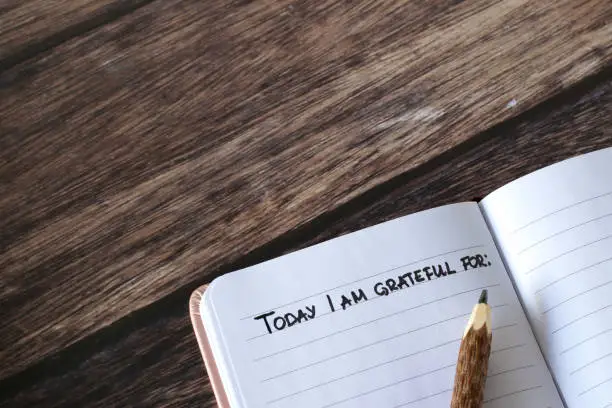 TODAY I AM GRATEFUL FOR: